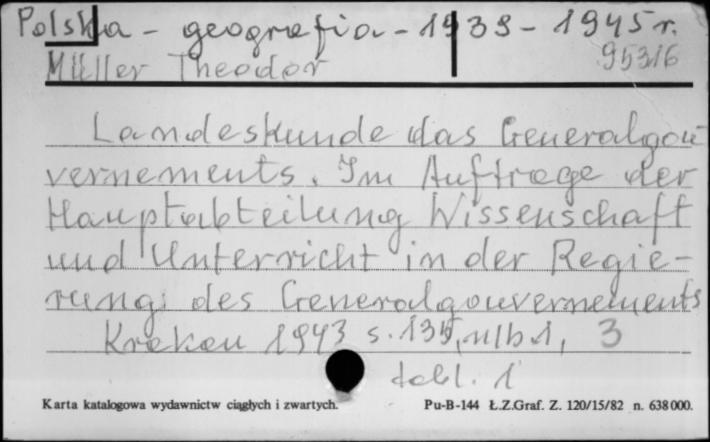 Polska - geografia - 1939 - 1945 r.
Müller Theodor 95316
Landeskunde das Generalgou
vernements. Im Auftrage der
Hauptabteilung Wissenschaft
und Unterricht in der Regie-
rung des Generalgouvernements
Krakau 1943 s. 135, nlb 1, 3
tabl. 1
Karta katalogowa wydawnictw ciągłych i zwartych. Pu-B-144 Ł.Z.Graf. Z. 120/15/82 n. 638 000.